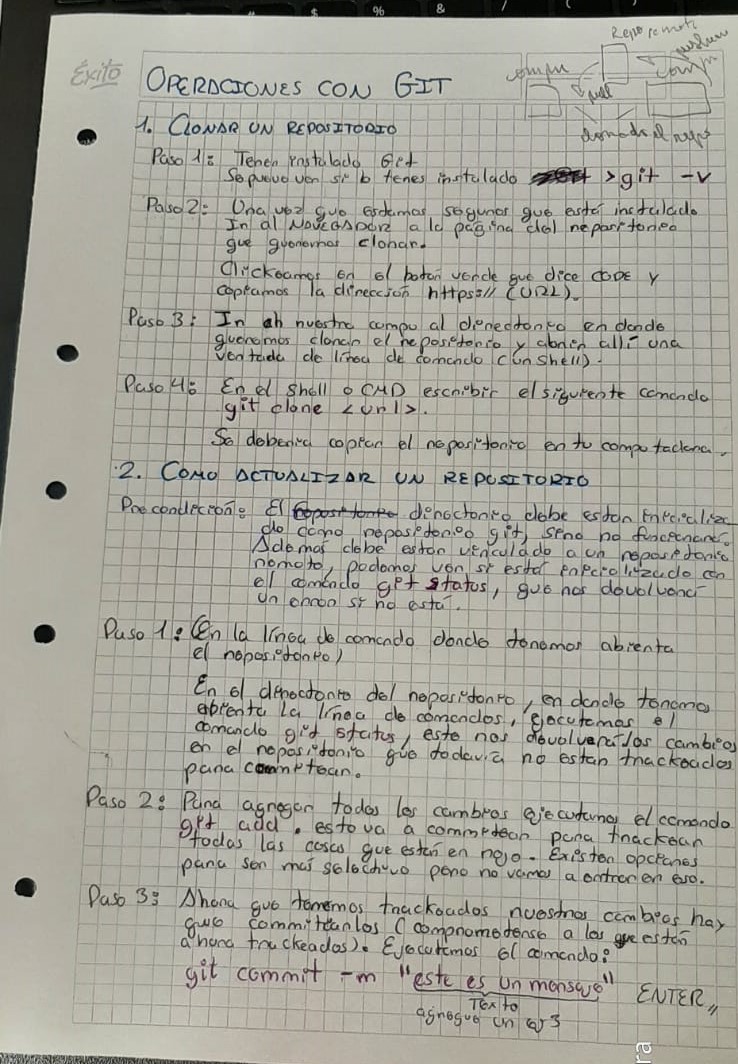 $ % & / (
Repo remoto
Éxito OPERACIONES CON GIT
compu pull compu
1. CLONAR UN REPOSITORIO
Paso 1: Tener instalado Git
Se puede ver si lo tenes instalado > git -v
Paso 2: Una vez que estamos seguros que está instalado
Ir al NAVEGADOR a la página del repositorio
que queremos clonar.
Clickeamos en el botón verde que dice CODE y
copiamos la dirección https:// (URL).
Paso 3: Ir en nuestra compu al directorio en donde
queremos clonar el repositorio y abrir allí una
ventada de línea de comando (un shell).
Paso 4: En el shell o CMD escribir el siguiente comando
git clone <url>.
Se debería copiar el repositorio en tu computadora.
2. COMO ACTUALIZAR UN REPOSITORIO
Precondición: El repositorio directorio debe estar inicializa
do como repositorio git, sino no funcionará.
Además debe estar vinculado a un repositorio
remoto, podemos ver si está inicializado con
el comando git status, que nos devolverá
un error si no está.
Paso 1: (En la línea de comando donde tenemos abierta
el repositorio)
En el directorio del repositorio, en donde tenemos
abierta la línea de comandos, ejecutamos el
comando git status, esto nos devolverá los cambios
en el repositorio que todavía no están trackeados
para commitear.
Paso 2: Para agregar todos los cambios ejecutamos el comando
git add . esto va a commitear para trackear
todas las cosas que están en rojo. Existen opciones
para ser más selectivo pero no vamos a entrar en eso.
Paso 3: Ahora que tenemos trackeados nuestros cambios hay
que commitearlos (comprometerse a los que están
ahora trackeados). Ejecutamos el comando:
git commit -m "este es un mensaje" ENTER
Texto
agregue un
ra